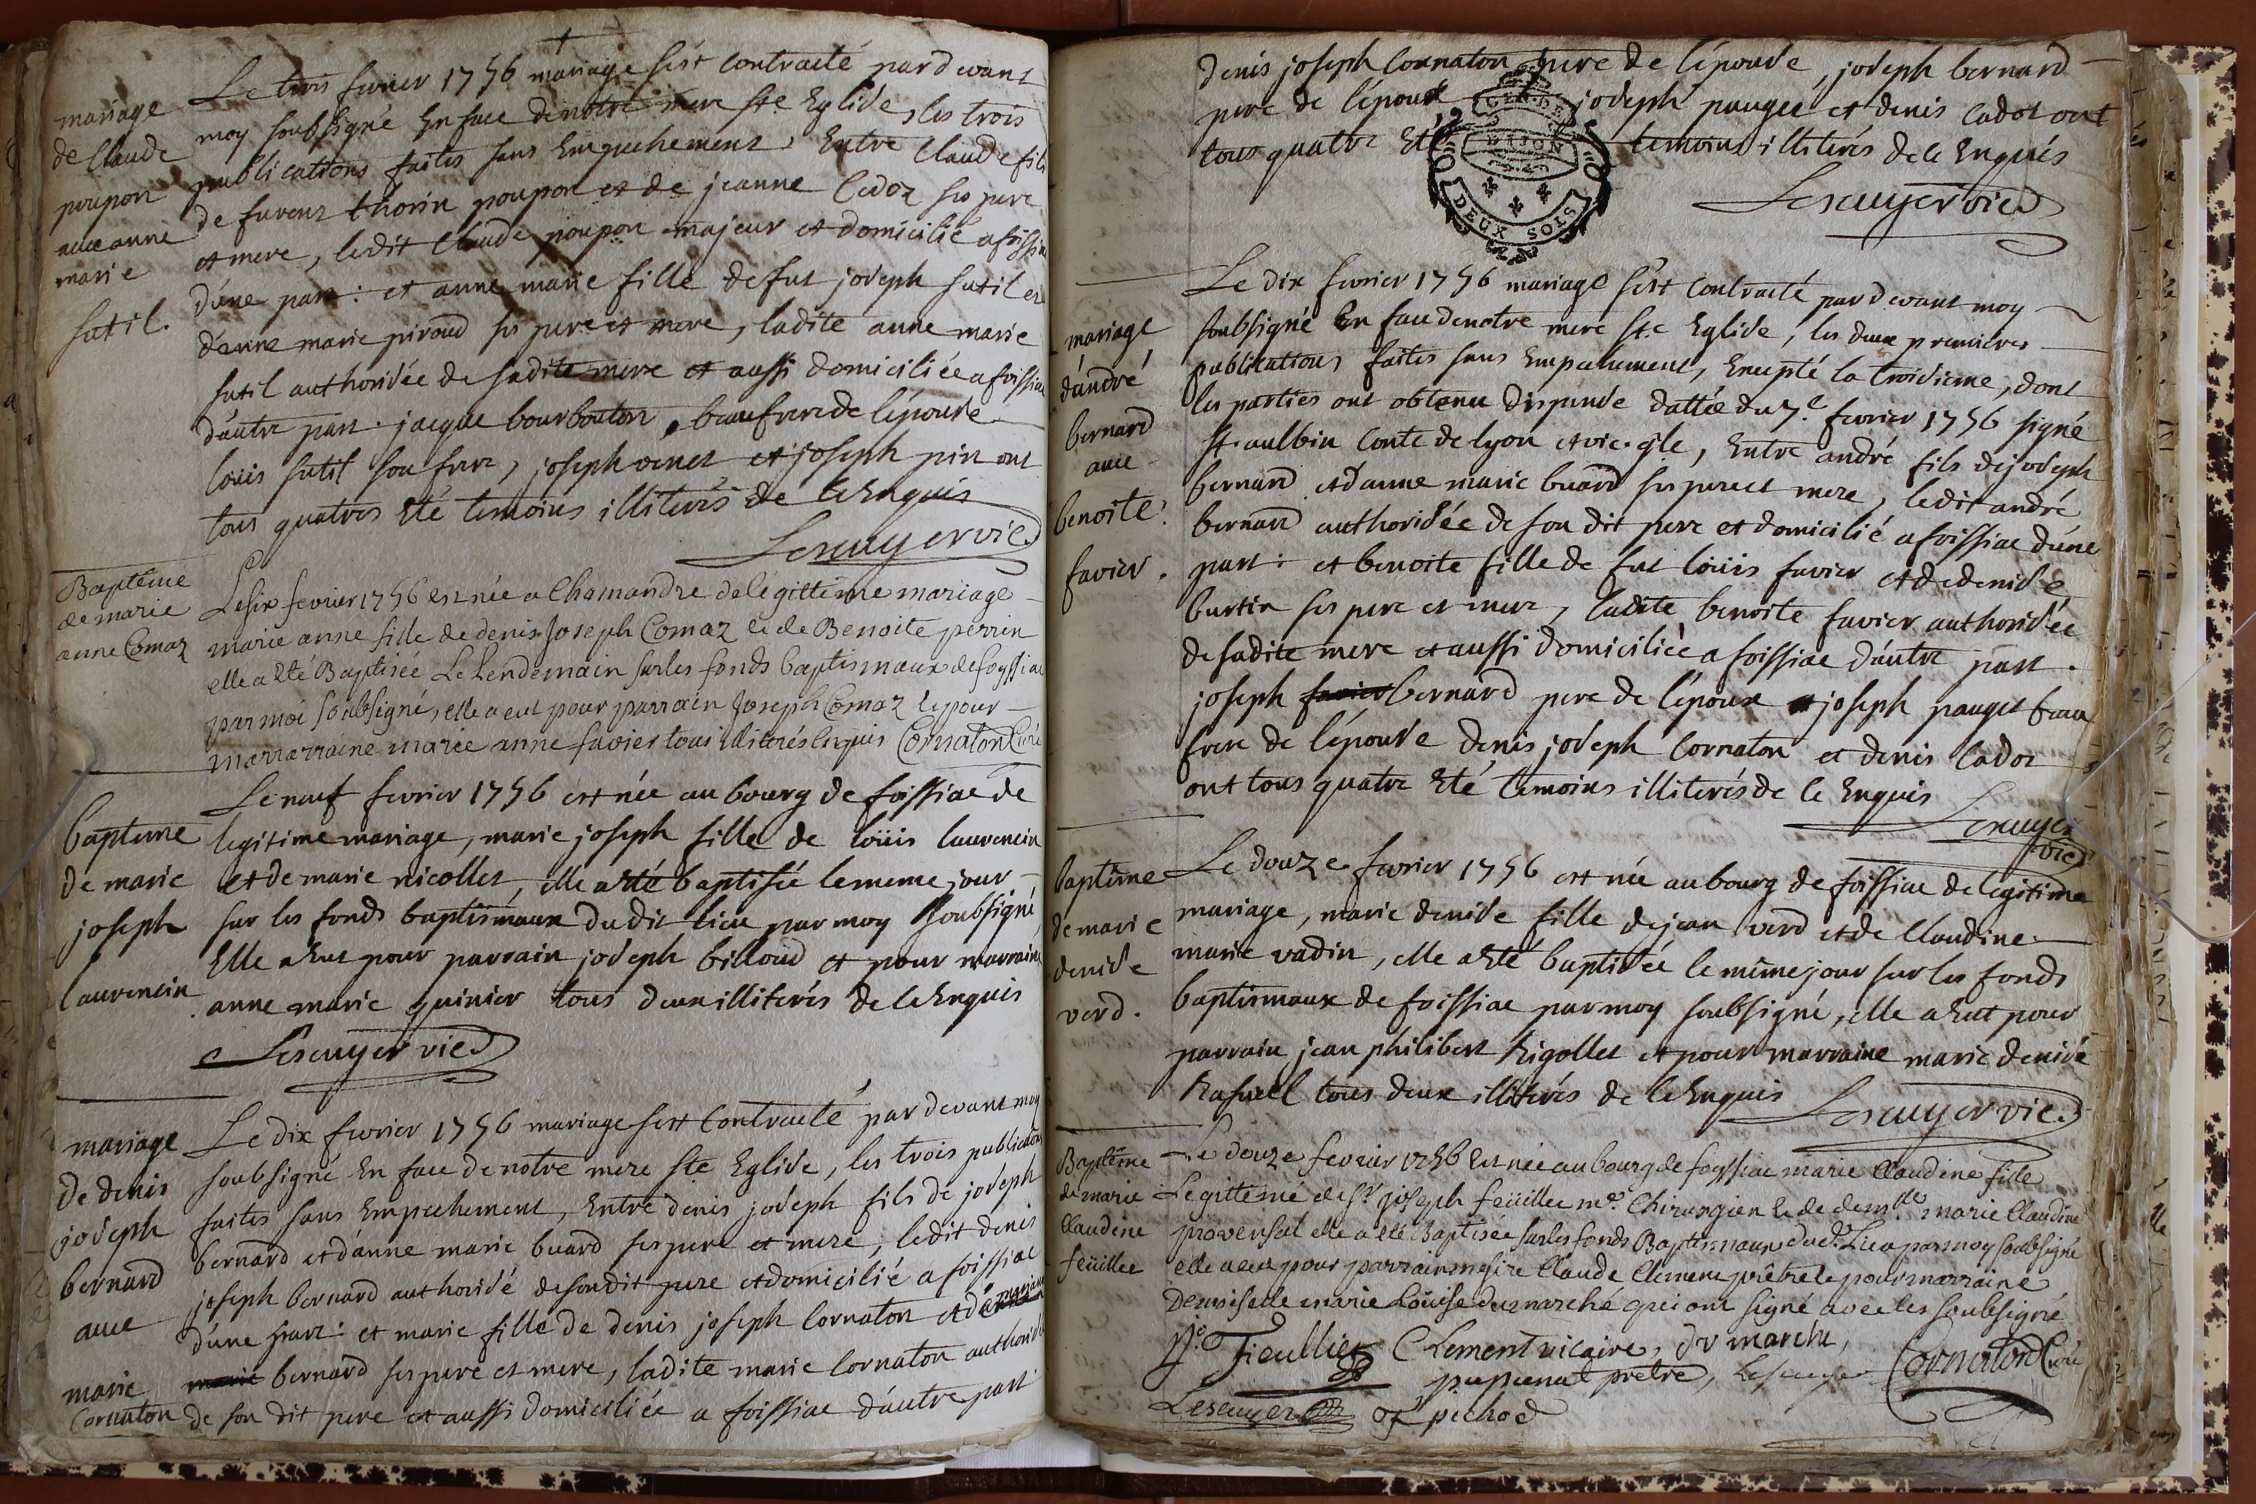 mariage
de Claude
poupon
avec anne
marie
sutil.
Le trois fevrier 1756 mariage s'est contracté pardevant
moy soubsigné En face de notre mere ste Eglise, les trois
publications faites sans Empechement, Entre Claude fils
de fu vour thorin poupon et de jeanne Cadoz ses pere
et mere, ledit Claude poupon majeur et domicilié a foissia
d'une part : et anne marie fille de fut joseph sutil et
d'anne marie piroud ses pere et mere, ladite anne marie
sutil authorisée de sadite mere et aussi domiciliée a foissia
d'autre part. jacque bourbouton beaufrere de l'epouse
loüis sutil son frere, joseph et joseph pin ont
tous quatres Eté temoins illiterés de le Enquis
Lescuyer vic.
Baptême
de marie
anne Comaz
Le six fevrier 1756 est née a Chamandre de légittime mariage
marie anne fille de denis Joseph Comaz et de Benoite perrin
elle a été Baptisée Le Lendemain sur les fonds baptismaux de foyssia
par moi soubsigné, elle a eut pour parrain Joseph Comaz et pour
marraine marie anne favier tous illiterés Enquis Cornaton Curé
baptême
de marie
joseph
laurencin
Le neuf fevrier 1756 est née au bourg de foissiac de
legitime mariage, marie joseph fille de loüis laurencin
et de marie nicollet, elle a été baptisée le meme jour
sur les fonds baptismaux du dit lieu par moy soubsigné,
Elle a Eut pour parrain joseph billoud et pour marraine
anne marie guinier tous deux illiterés de le Enquis
Lescuyer vic.
mariage
de denis
joseph
bernard
avec
marie
Cornaton
Le dix fevrier 1756 mariage s'est Contracté par devant moy
soubsigné En face de notre mere Ste Eglise, les trois publications
faites sans Empechement, Entre denis joseph fils de joseph
bernard et d'anne marie buard ses pere et mere, ledit denis
joseph bernard authorisé de son dit pere et domicilié a foissiac
d'une part : et marie fille de denis joseph Cornaton et de
bernard ses pere et mere, ladite marie Cornaton authorisée
de son dit pere et aussi domiciliée a foissiac d'autre part
denis joseph Cornaton pere de l'épouse, joseph bernard
pere de l'époux joseph pauget et denis Cadot ont
tous quatre Eté temoins illiterés de le Enquis
GEN. DE
DIJON
DEUX SOLS
Lescuyer vic.
mariage
d'andré
bernard
avec
benoite
favier.
Le dix fevrier 1756 mariage s'est Contracté par devant moy
soubsigné En face de notre mere Ste Eglise, les deux premieres
publications faites sans Empechement, Excepté la troisieme, dont
les parties ont obtenu dispense dattée du 7e fevrier 1756 signé
St. aulbin Conte de lyon et vic. gle, Entre andré fils de joseph
bernard et d'anne marie buard ses pere et mere, ledit andré
bernard authorisée de son dit pere et domicilié a foissiac d'une
part : et benoite fille de fut loüis favier et de denise
burtin ses pere et mere, ladite benoite favier authorisée
de sadite mere et aussi domiciliée a foissiac d'autre part.
joseph favier bernard pere de l'époux et joseph pauget beau
frere de l'épouse denis joseph Cornaton et denis Cadoz
ont tous quatre Eté temoins illiterés de le Enquis
Lescuyer
vic.
baptême
de marie
denise
verd.
Le douze fevrier 1756 est née au bourg de foissiac de legitime
mariage, marie denise fille de jean verd et de Claudine
marie vadin, elle a Eté baptisée le même jour sur les fonds
baptismaux de foissiac par moy soubsigné, elle a Eut pour
parrain jean philibert Rigollet et pour marraine marie denise
Rasuell tous deux illiterés de le Enquis
Lescuyer vic.
Baptême
de marie
Claudine
feüillee
Le douze fevrier 1756 Est née au bourg de foyssiac marie Claudine fille
Legittime de sr. joseph feüillee me. Chirurgien et de demlle marie Claudine
provensal elle a été Baptisée sur les fonds Baptismaux dud. Lieu par moy soubsigné
elle a eut pour parrain messire Claude Clement prêtre et pour marraine
Demoiselle marie Loüise dumarché qui ont signé avec les soubsigné
Feullier Clement vicaire, du marché,
pupunat prêtre, Lescuyer Cornaton Curé
Lescuyer pichod